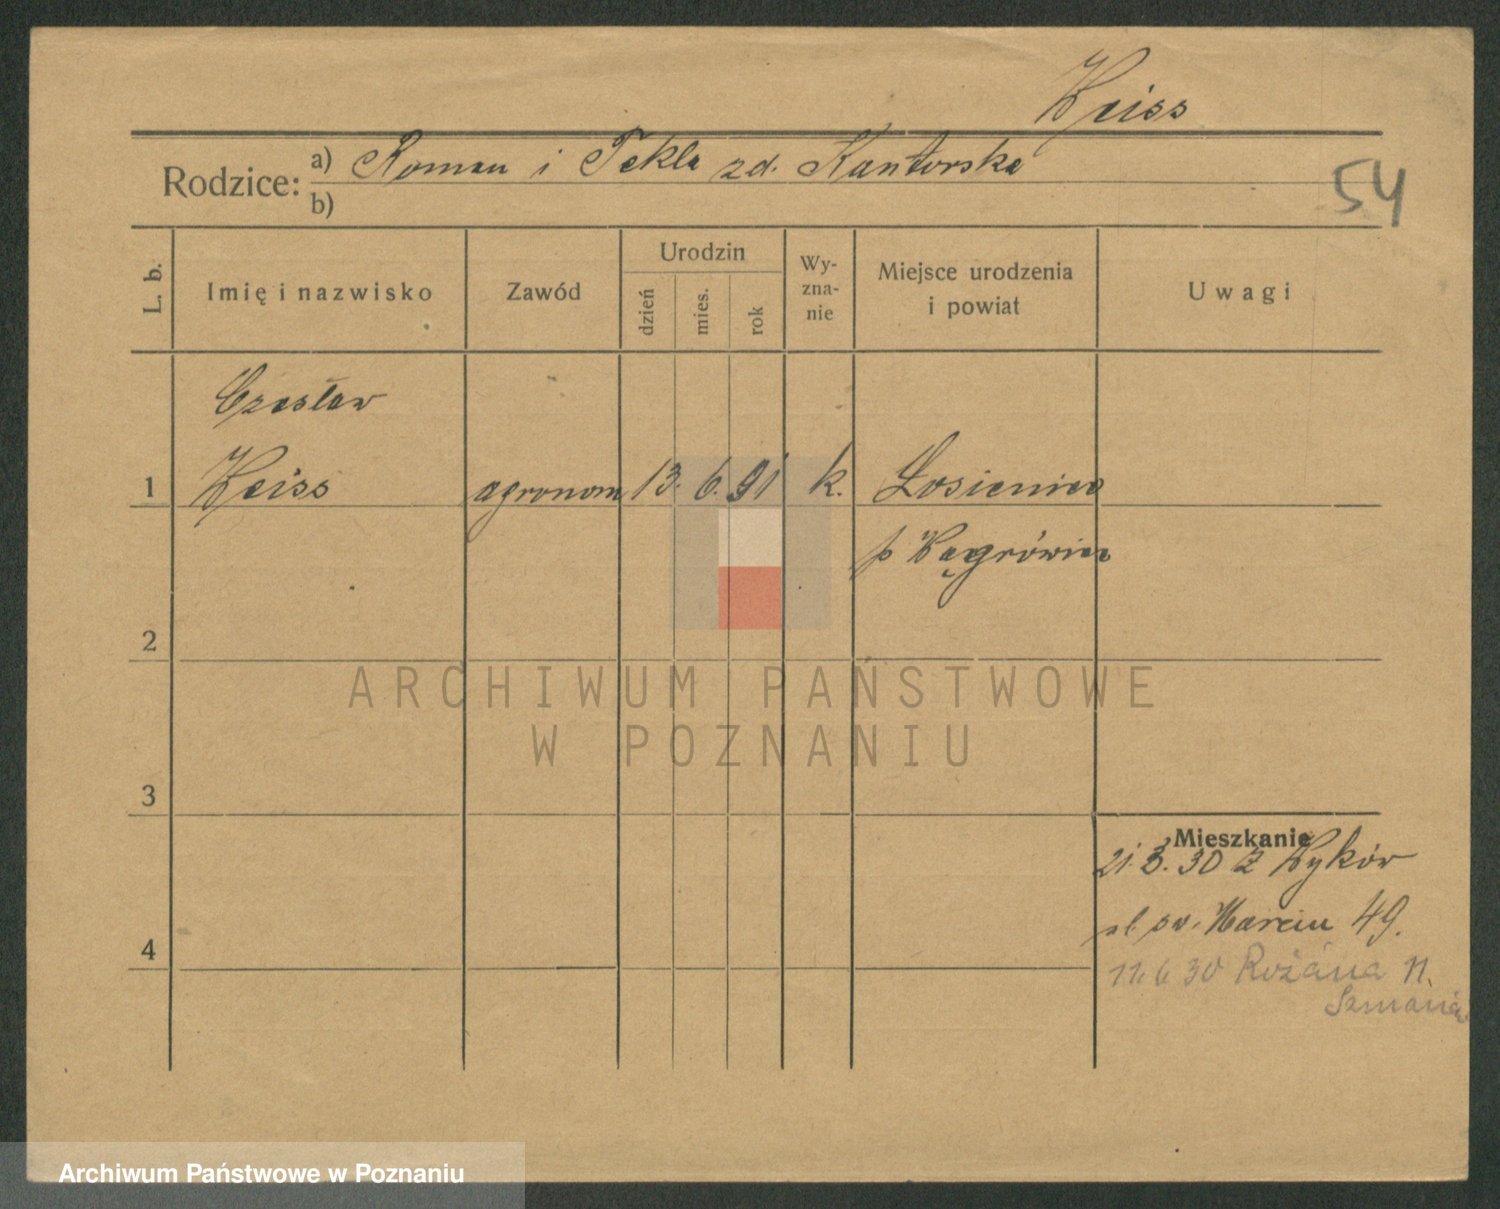 Weiss
Rodzice: a) Roman i Tekla zd. Kantorska
b)
54
L. b.
Imię i nazwisko
Zawód
Urodzin
dzień
mies.
rok
Wy-
zna-
nie
Miejsce urodzenia
i powiat
Uwagi
Czesław
1 Weiss agronom 13. 6. 91 k. Łosieniec
p Wągrówiec
2
ARCHIWUM PAŃSTWOWE
W POZNANIU
3
Mieszkanie
21.3.30 z Wyków
ul św. Marcin 49.
4
11.6 30 Różana 11.
Archiwum Państwowe w Poznaniu